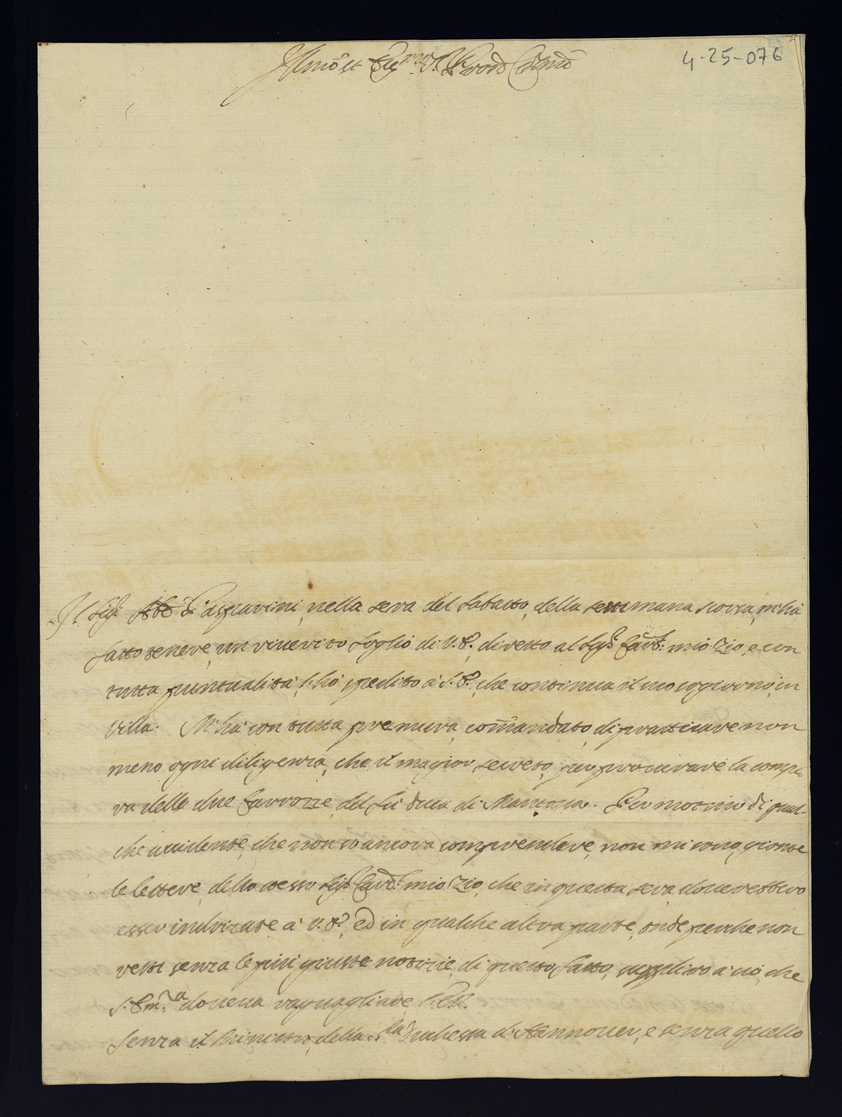 4-25-076
Illmo et Ecc.mo S.r
Il Sig.r Abb.e nella sera del Sabatto, della settimana scorsa, m'hà
fatto tenere, un riverito foglio di V.E., diretto al Sig.r Card.l mio Zio, e con
tutta puntualità, l'hò spedito à S.E., che continua il suo in
Villa. M'hà con tutta premura, com̃andato, di pratticare non
meno ogni diligenza, che il maggior secreto, per procurare la compra
delle due Carrozze, del fù Duca di Mantoua. Per motivo di qual-
che accidente, che non sò ancora comprendere, non mi sono gionte
le lettere, dello stesso Sig.r Card.l mio Zio, che in questa sera
esser indrizate à V.E., ed in qualche altra parte, onde perche non
resti senza le più giuste notizie, di questo fatto, supplirò à ciò, che
S. Em.za doueua raguagliare
Senza il Ministro, della S.ra Duchessa di Hannover, e senza quello